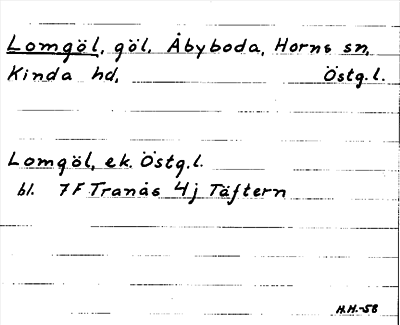 Lomgöl, göl, Åbyboda, Horns sn,
Kinda hd, Östg.l.
Lomgöl, ek. Östg.l.
bl. 7F Tranås 4j Täftern
H.H.-58